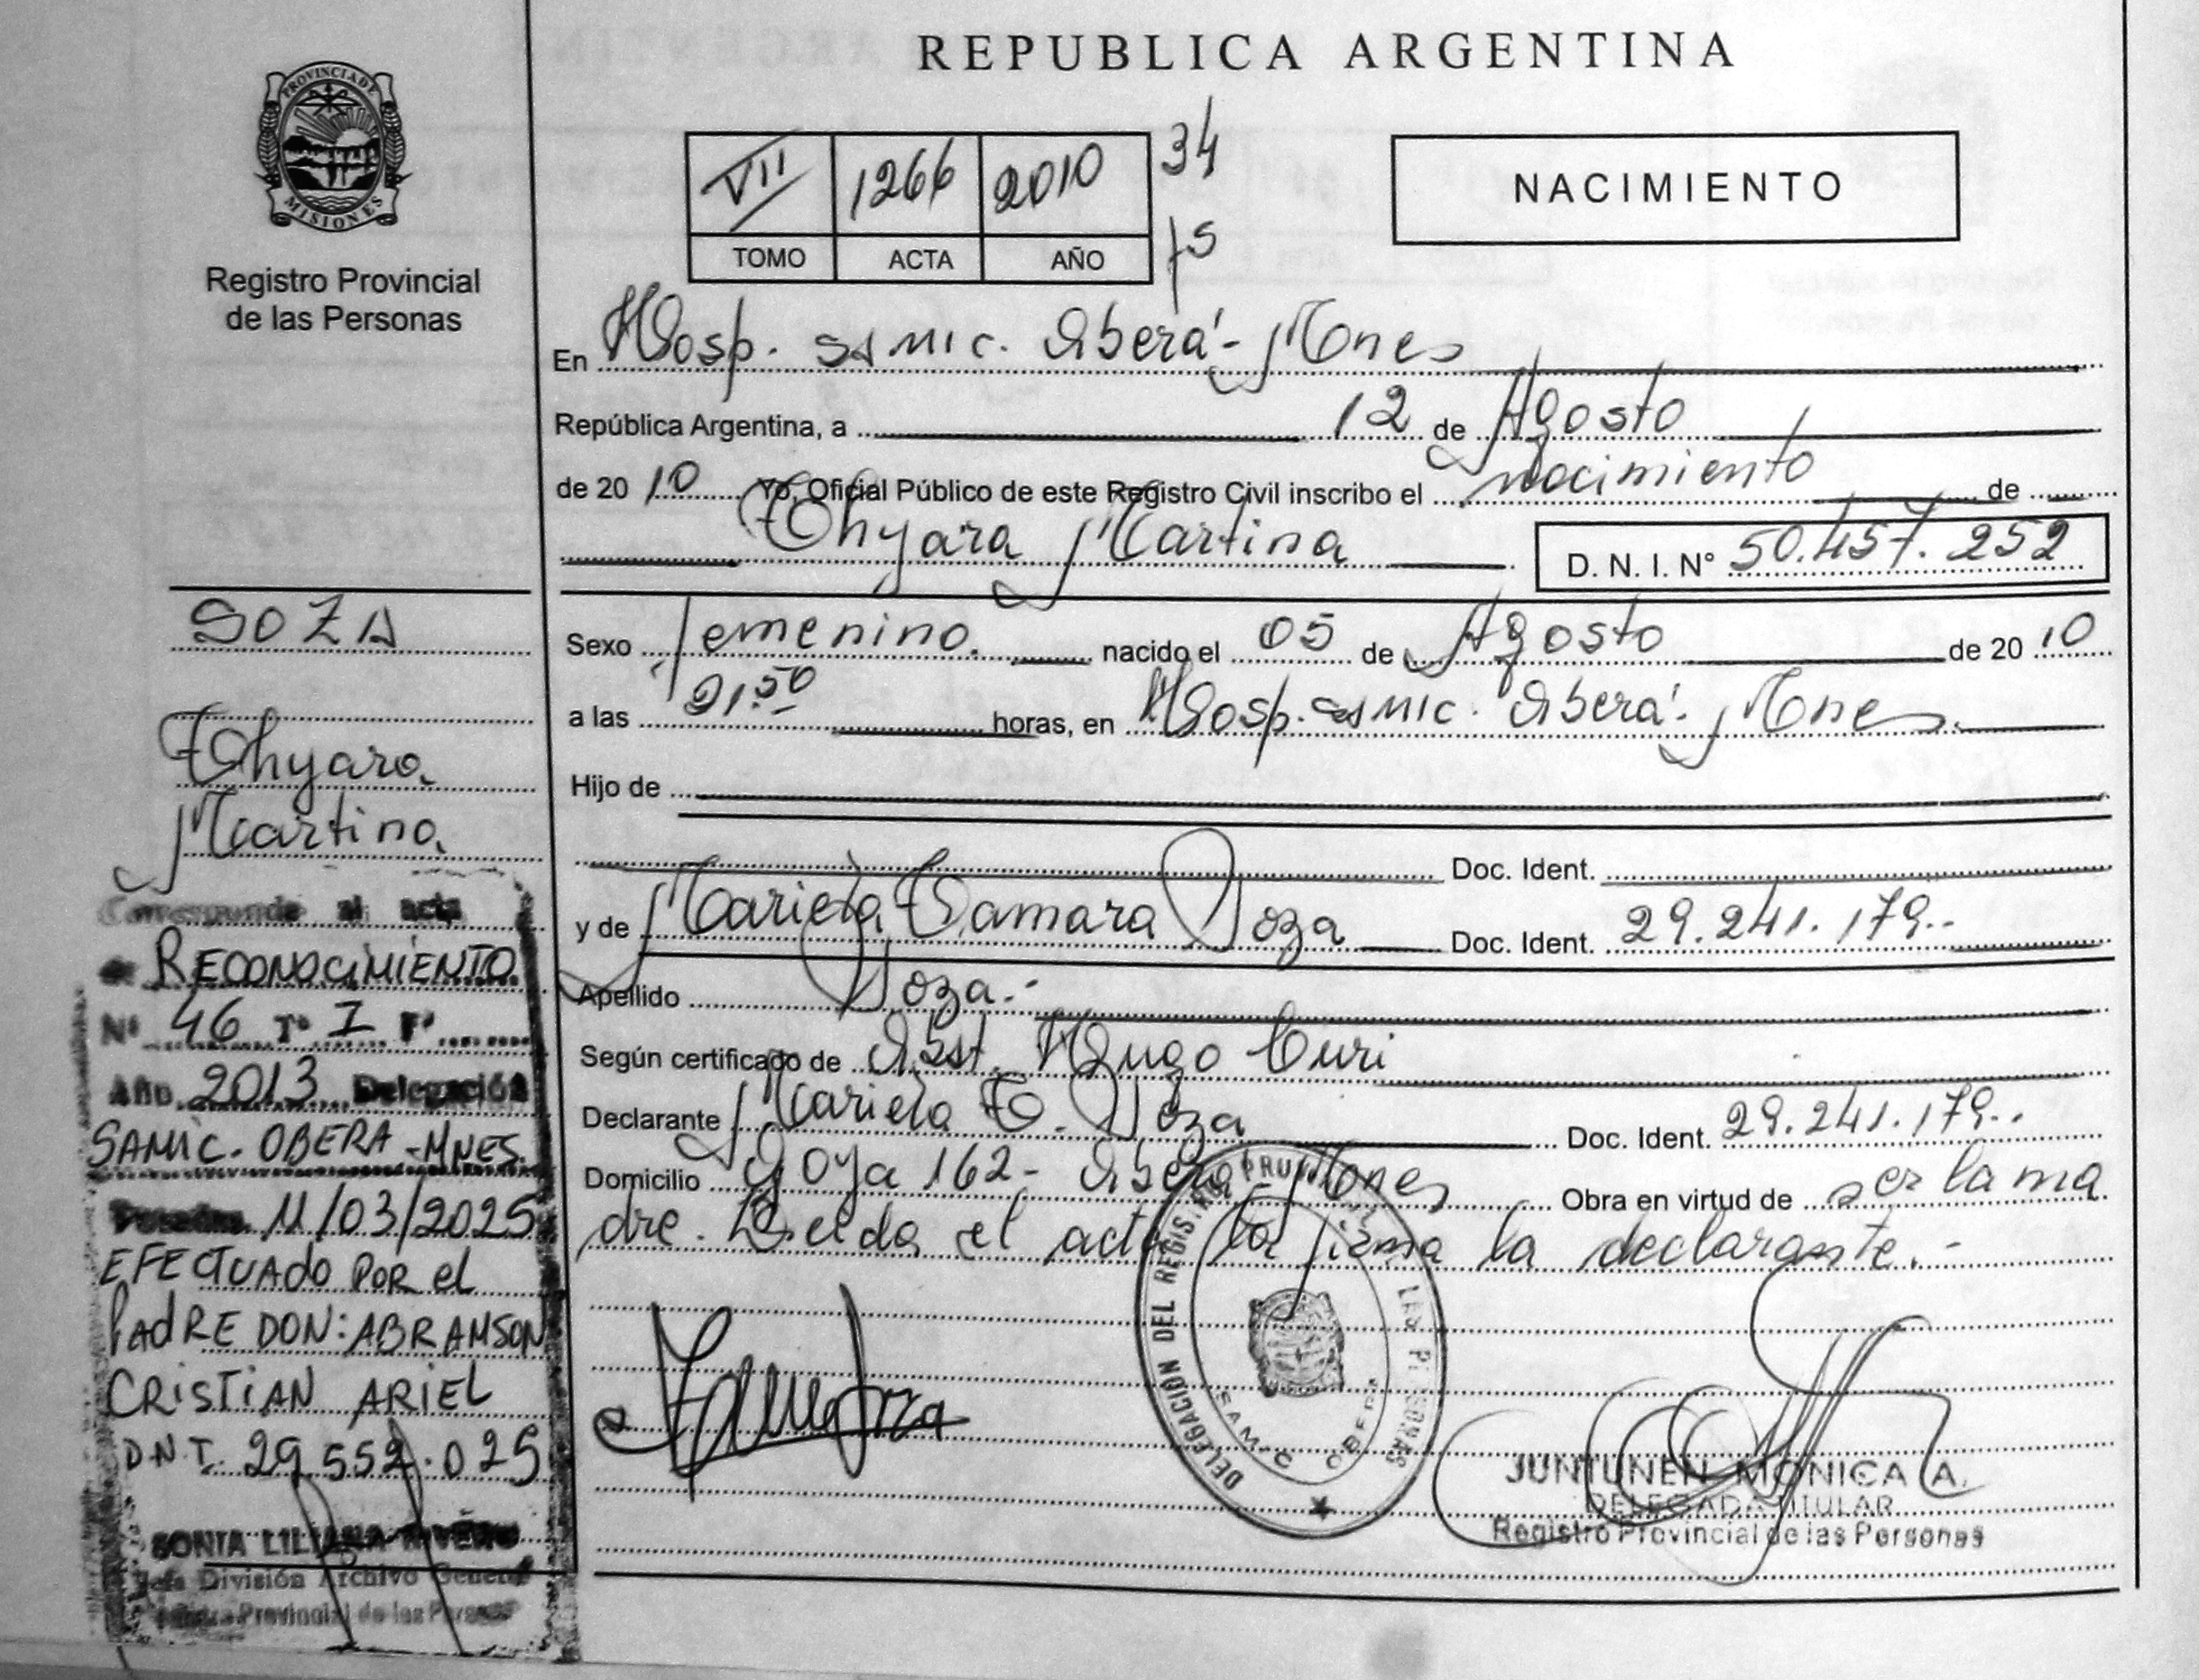 REPUBLICA ARGENTINA
PROVINCIA DE
MISIONES
Registro Provincial
de las Personas
VII 1266 2010 34
TOMO ACTA AÑO 75
NACIMIENTO
En Hosp. SAMIC. Oberá - Mnes
República Argentina, a 12 de Agosto
de 20 10 Yo, Oficial Público de este Registro Civil inscribo el nacimiento de
Thyara Martina D. N. I. N° 50.457.252
Sexo femenino. nacido el 05 de Agosto de 20 10
a las 21:50 horas, en Hosp. SAMIC. Oberá - Mnes.
Hijo de
Doc. Ident.
y de Mariela Tamara Soza Doc. Ident. 29.241.179.-
Apellido Soza.-
Según certificado de Obst. Hugo Curi
Declarante Mariela T. Soza Doc. Ident. 29.241.179.-
Domicilio Goya 162 - Oberá Mnes Obra en virtud de ser la ma
dre. Leida el acta la firma la declarante.-
SOZA
Thyara
Martina
Corresponde al acta
de RECONOCIMIENTO
N° 46 T° I F°
Año 2013 Delegación
SAMIC. OBERA - MNES.
Posadas 11/03/2025
EFECTUADO POR el
PADRE DON: ABRAMSON
CRISTIAN ARIEL
DNI. 29.552.025
SONIA LILIANA RIVERO
Jefa División Archivo General
Provincial de las Personas
DELEGACION DEL REGISTRO PROVINCIAL DE LAS PERSONAS
SAMIC OBERA
JUNTUNEN MONICA A.
DELEGADA TITULAR
Registro Provincial de las Personas